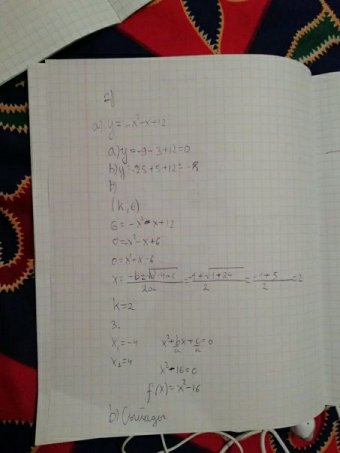 2)
a) y = -x²-x+12
a) y = -9-3+12=0
b) y = -25+5+12=-8
b)
(k, 6)
6 = -x²-x+12
0=-x²-x+6
0=x²+x-6
x = (-b±√(b²-4ac))/(2a) = (-1±√(1+24))/2 = (-1+5)/2 = 2
k=2
3.
x₁=-4 x²+b/a x+c/a=0
x₂=4
x²-16=0
f(x)=x²-16
b)